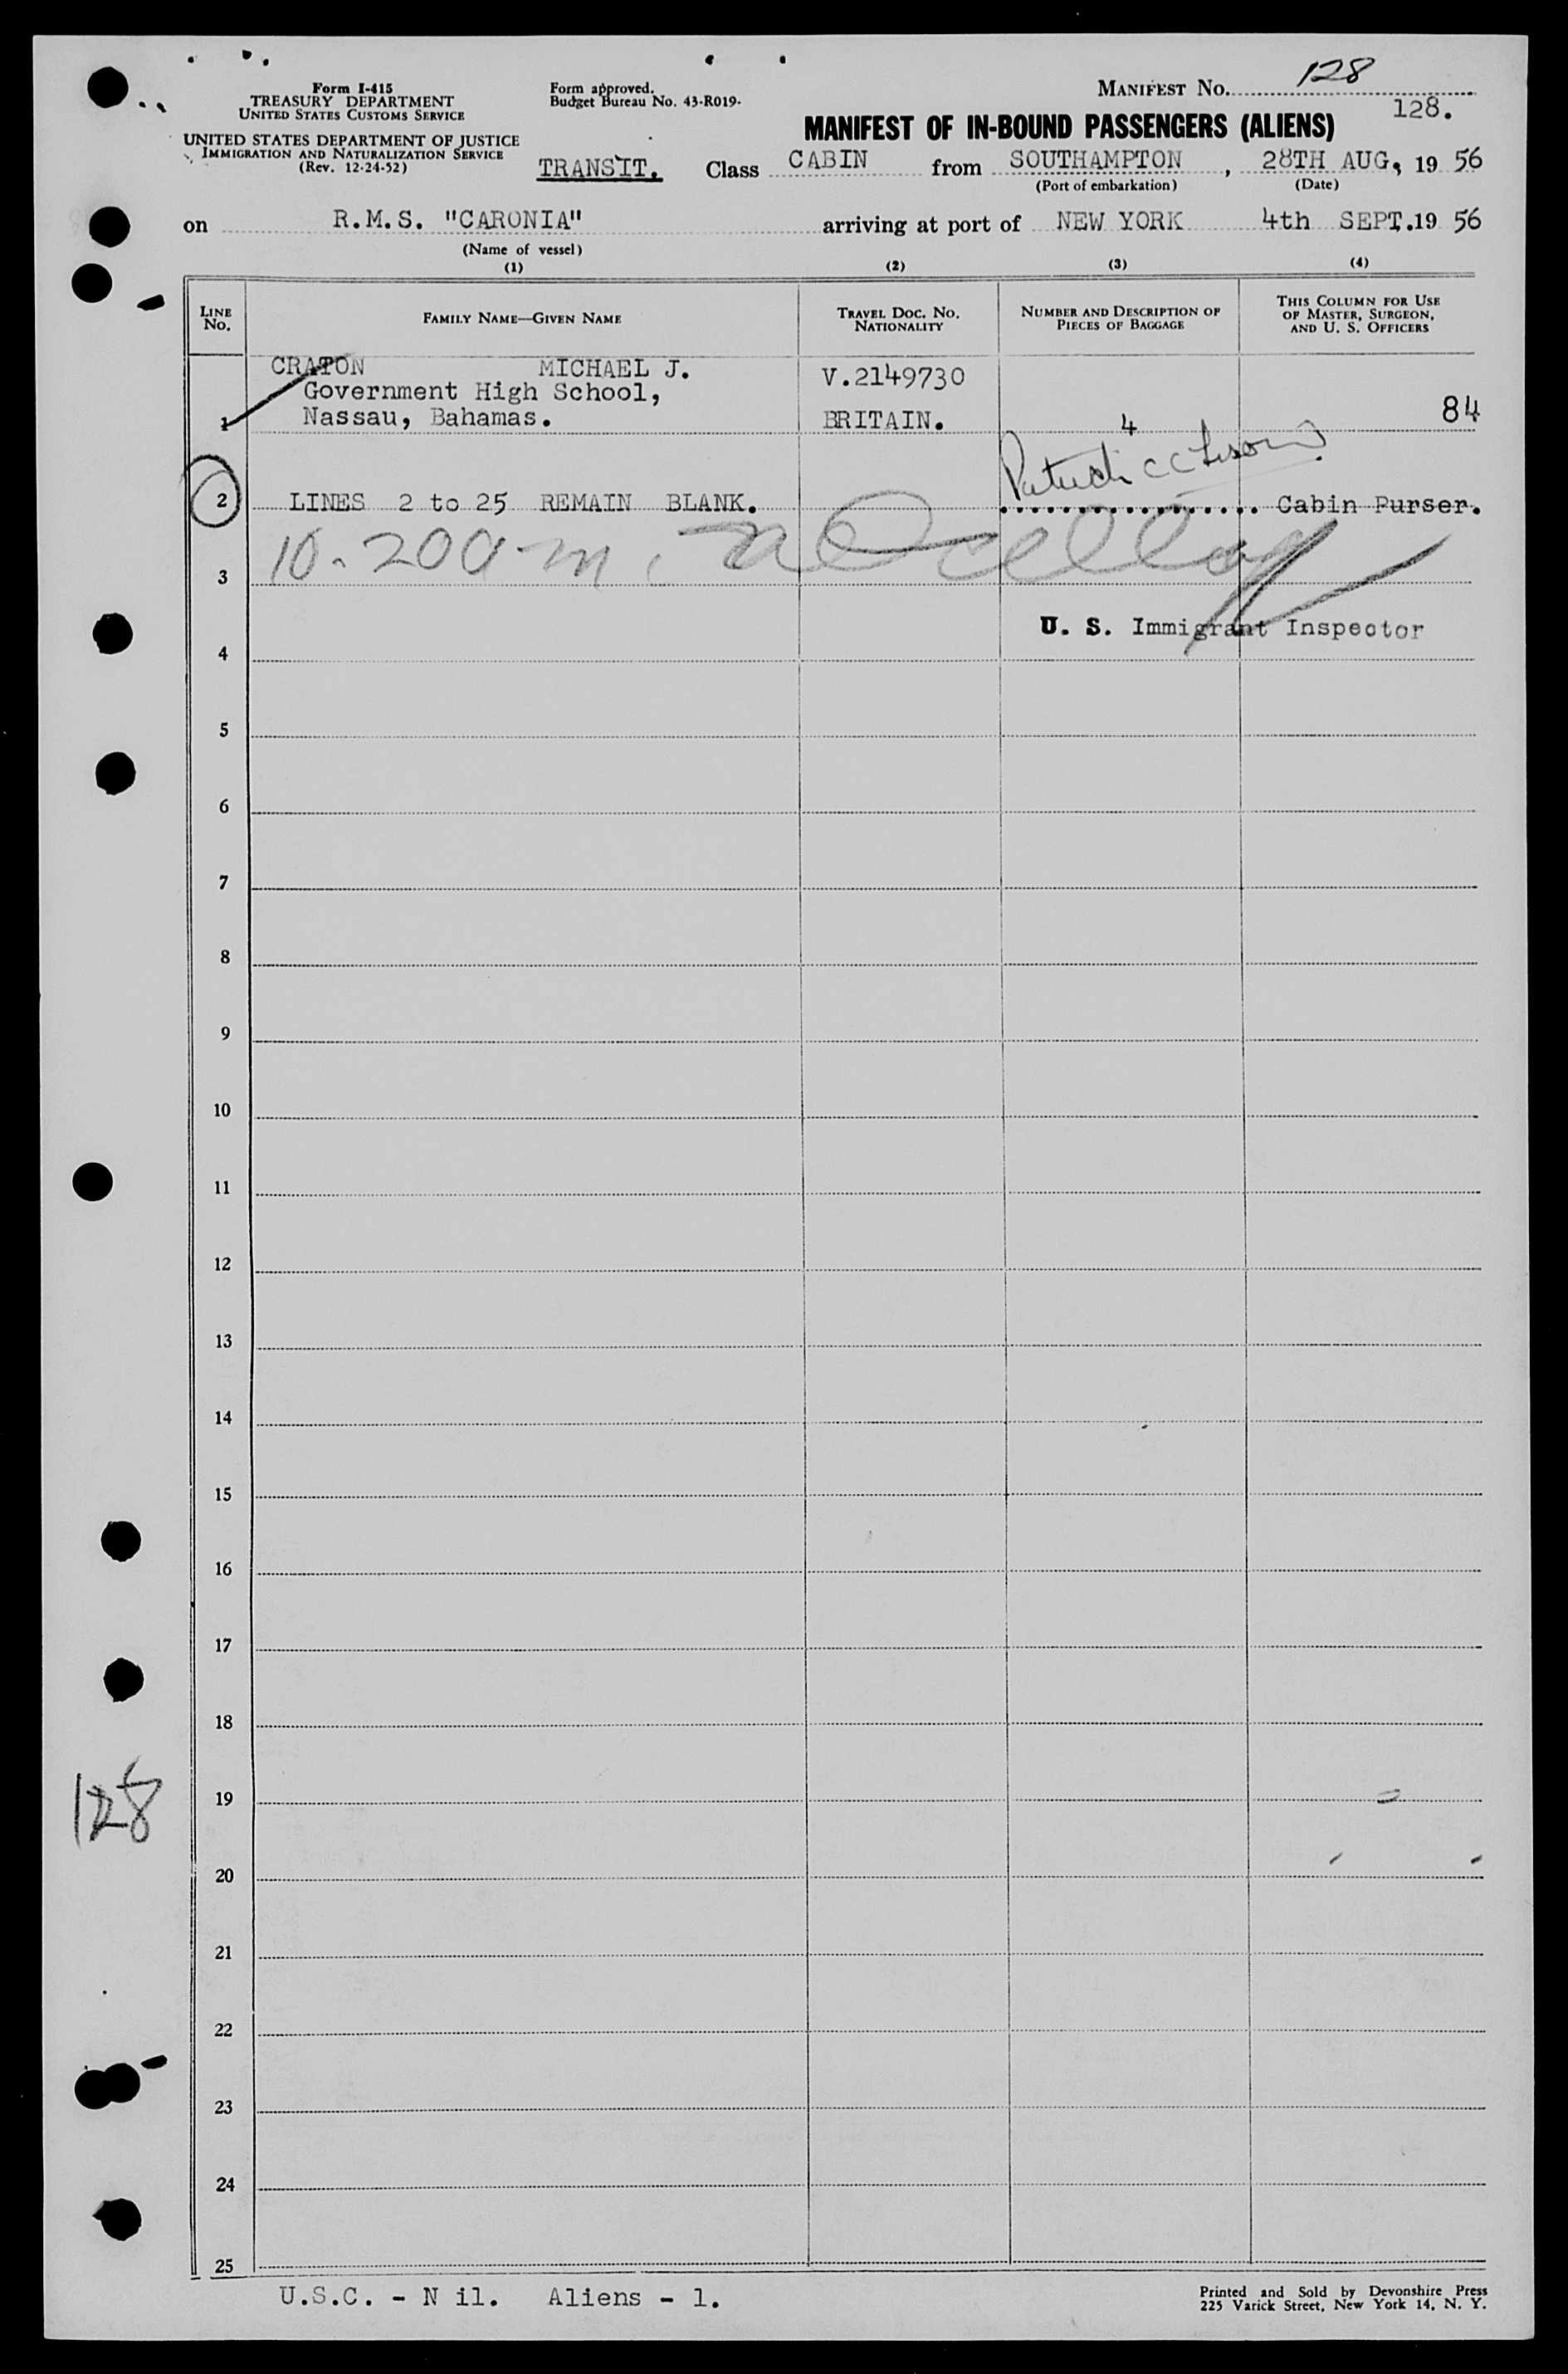 Form I-415
TREASURY DEPARTMENT
UNITED STATES CUSTOMS SERVICE
UNITED STATES DEPARTMENT OF JUSTICE
IMMIGRATION AND NATURALIZATION SERVICE
(Rev. 12-24-52)
Form approved.
Budget Bureau No. 43-R019-
MANIFEST No. 128
128.
MANIFEST OF IN-BOUND PASSENGERS (ALIENS)
TRANSIT. Class CABIN from SOUTHAMPTON, 28TH AUG, 19 56
(Port of embarkation) (Date)
on R.M.S. "CARONIA" arriving at port of NEW YORK 4th SEPT. 19 56
(Name of vessel)
(1) (2) (3) (4)
LINE No. FAMILY NAME—GIVEN NAME TRAVEL DOC. No. NATIONALITY NUMBER AND DESCRIPTION OF PIECES OF BAGGAGE THIS COLUMN FOR USE OF MASTER, SURGEON, AND U. S. OFFICERS
CRATON MICHAEL J. V.2149730
Government High School,
1 Nassau, Bahamas. BRITAIN. 4 84
2 LINES 2 to 25 REMAIN BLANK. Cabin Purser.
3 10.200 m.
U. S. Immigrant Inspector
4
5
6
7
8
9
10
11
12
13
14
15
16
17
18
128
19
20
21
22
23
24
25
U.S.C. - N il. Aliens - 1.
Printed and Sold by Devonshire Press
225 Varick Street, New York 14, N. Y.